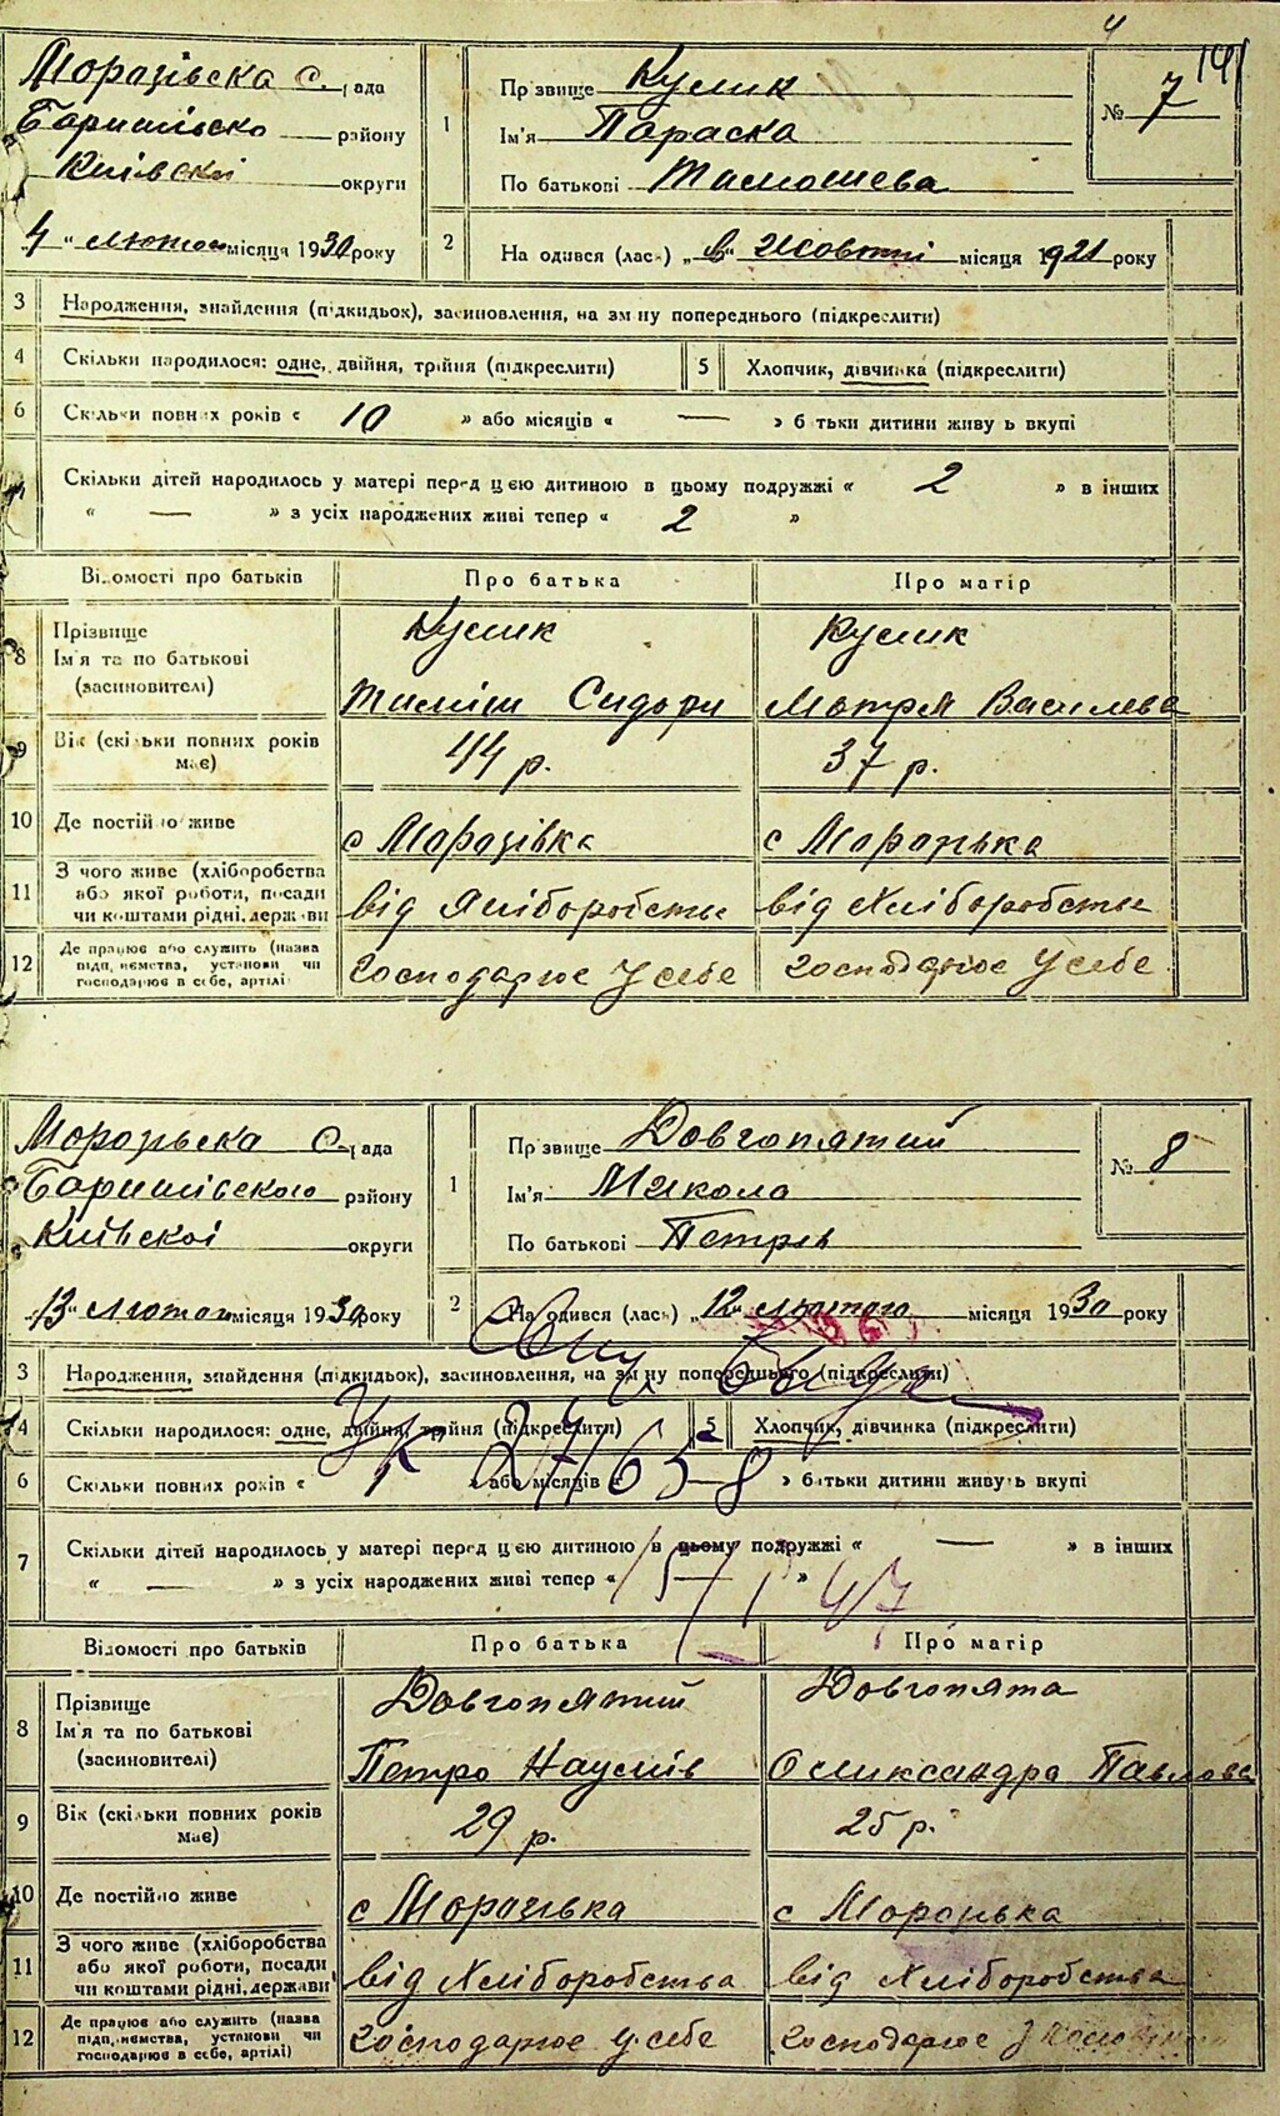 4
141
Моразівска с. рада
Баришівско району
Київскі округи
4 " лютого місяця 1930 року
1
Прізвище Кулик
Ім'я Параска
По батькові Тимошева
№ 7
2
На одився (лась) " Жовтні місяця 1921 року
3 Народження, знайдення (підкидьок), засиновлення, на зміну попереднього (підкреслити)
4 Скільки народилося: одне, двійня, трійня (підкреслити) 5 Хлопчик, дівчинка (підкреслити)
6 Скільки повних років « 10 » або місяців « — » батьки дитини живуть вкупі
Скільки дітей народилось у матері перед цією дитиною в цьому подружжі « 2 » в інших
« — » з усіх народжених живі тепер « 2 »
Відомості про батьків Про батька Про матір
8 Прізвище Кулик Кулик
Ім'я та по батькові
(засиновителі) Тиміш Сидори Мотря Василева
9 Вік (скільки повних років має) 44 р. 37 р.
10 Де постійно живе с Моразівка с Моразівка
11 З чого живе (хліборобства
або якої роботи, посади
чи коштами рідні, держави від Хліборобства від Хліборобства
12 Де працює або служить (назва
підприємства, установи чи
господарює в себе, артілі Господарює У себе Господарює У себе
Моразівска С. рада
Баришівского району
Київскоі округи
13 " Лютого місяця 1930 року
1
Прізвище Довгопятий
Ім'я Микола
По батькові Петрів
№ 8
2
На одився (лась) „ 12 " лютого місяця 1930 року
3 Народження, знайдення (підкидьок), засиновлення, на зміну попереднього (підкреслити)
4 Скільки народилося: одне, двійня, трійня (підкреслити) 5 Хлопчик, дівчинка (підкреслити)
6 Скільки повних років « 1 » або місяців « — » батьки дитини живуть вкупі
7 Скільки дітей народилось у матері перед цією дитиною в цьому подружжі « — » в інших
« — » з усіх народжених живі тепер « — »
Відомості про батьків Про батька Про матір
8 Прізвище Довгопятий Довгопята
Ім'я та по батькові
(засиновителі) Петро Наумів Олександра Павлова
9 Вік (скільки повних років має) 29 р. 25 р.
10 Де постійно живе с Моразівка с Моразівка
11 З чого живе (хліборобства
або якої роботи, посади
чи коштами рідні, держави від Хліборобства від Хліборобства
12 Де працює або служить (назва
підприємства, установи чи
господарює в себе, артілі) Господарює у себе Господарює